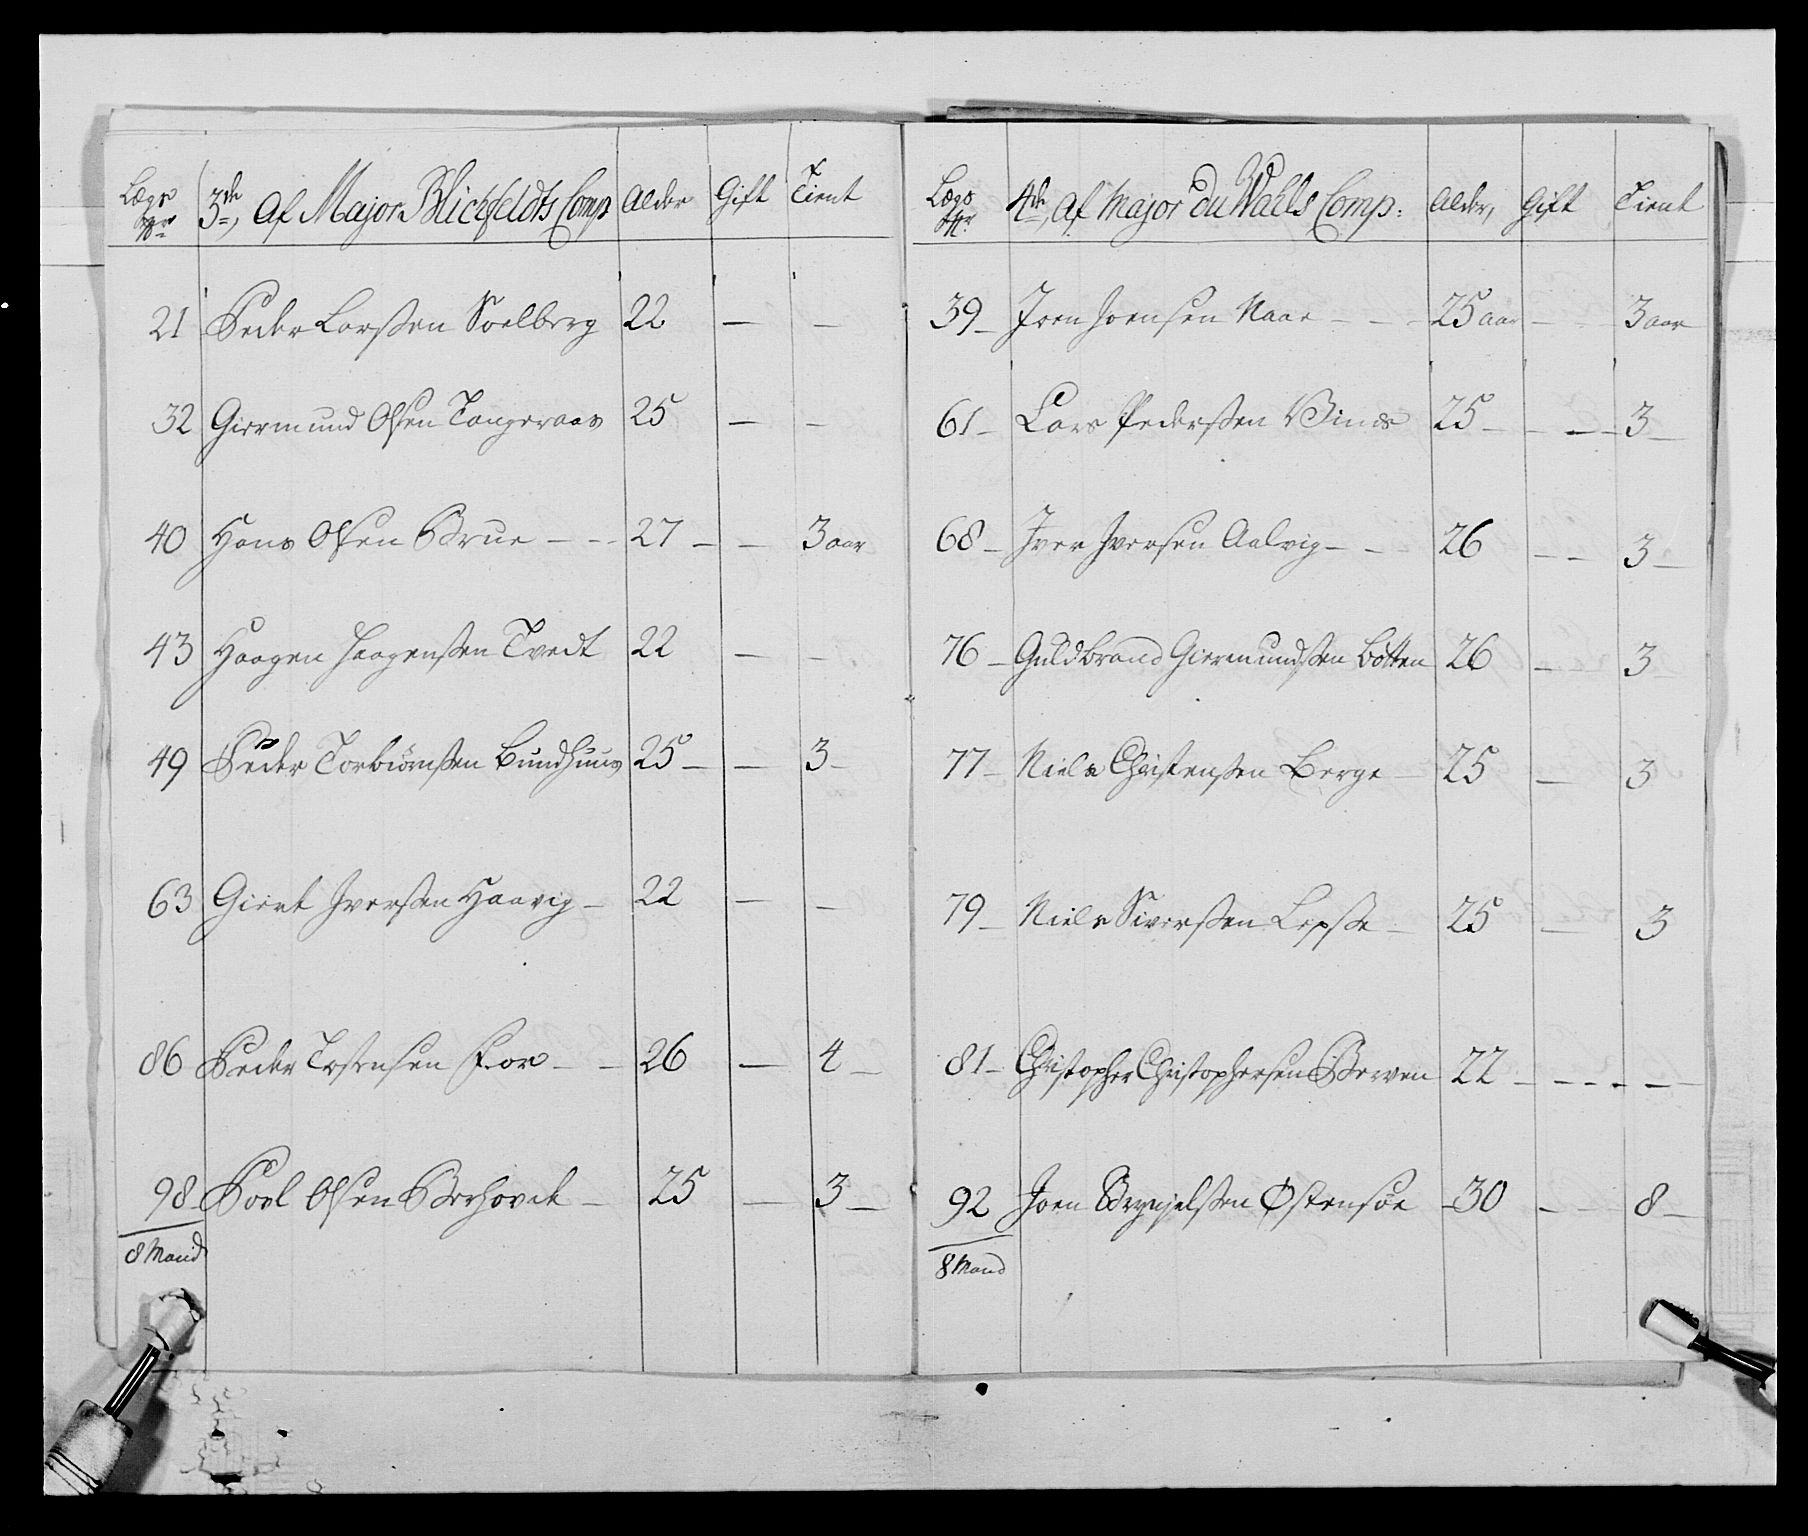 Lægs Nr 3de, Af Major Blichfeldts Comp Alder Gift Tient
21 Peder Larssen Soelberg 22 — —
32 Giermund Olsen Tangeraas 25 — —
40 Hans Olsen Brue — — 27 — — 3 aar
43 Haagen Haagenssen Tvedt 22 — —
49 Peder Torbiørnssen Bundhuus 25 — — 3 —
63 Giert Iverssen Haavig — 22 — —
86 Peder Tostensen — — 26 — 4 —
98 Poel Olsen Berhovet — 25 — 3 —
8 Mand
Lægs Nr 4de, Af Major du Wahls Comp: Alder, Gift Tient
39 — Joen Joensen Naae — — 25 aar — 3 aar
61 — Lars Pederssen Vinds 25 — — — 3 —
68 — Iver Iversen Aalvig — — 26 — — 3 —
76 — Guldbrand Giermundssen Botten 26 — 3
77 — Niels Christenssen Berge — 25 — 3
79 — Niels Siverssen Lepsse — 25 — 3
81 — Christopher Christophersen Berven 22 — — — — —
92 Joen Brynjelssen Østensøe — 30 — 8 —
8 Mand